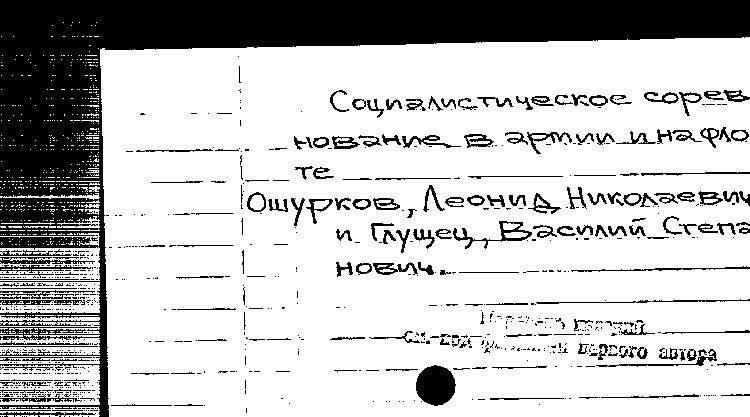 Социалистическое сорев
нование в армии и на фло
те
Ошурков, Леонид Николаевич
и Глущец, Василий Степа
нович.
см. под фамилией первого автора